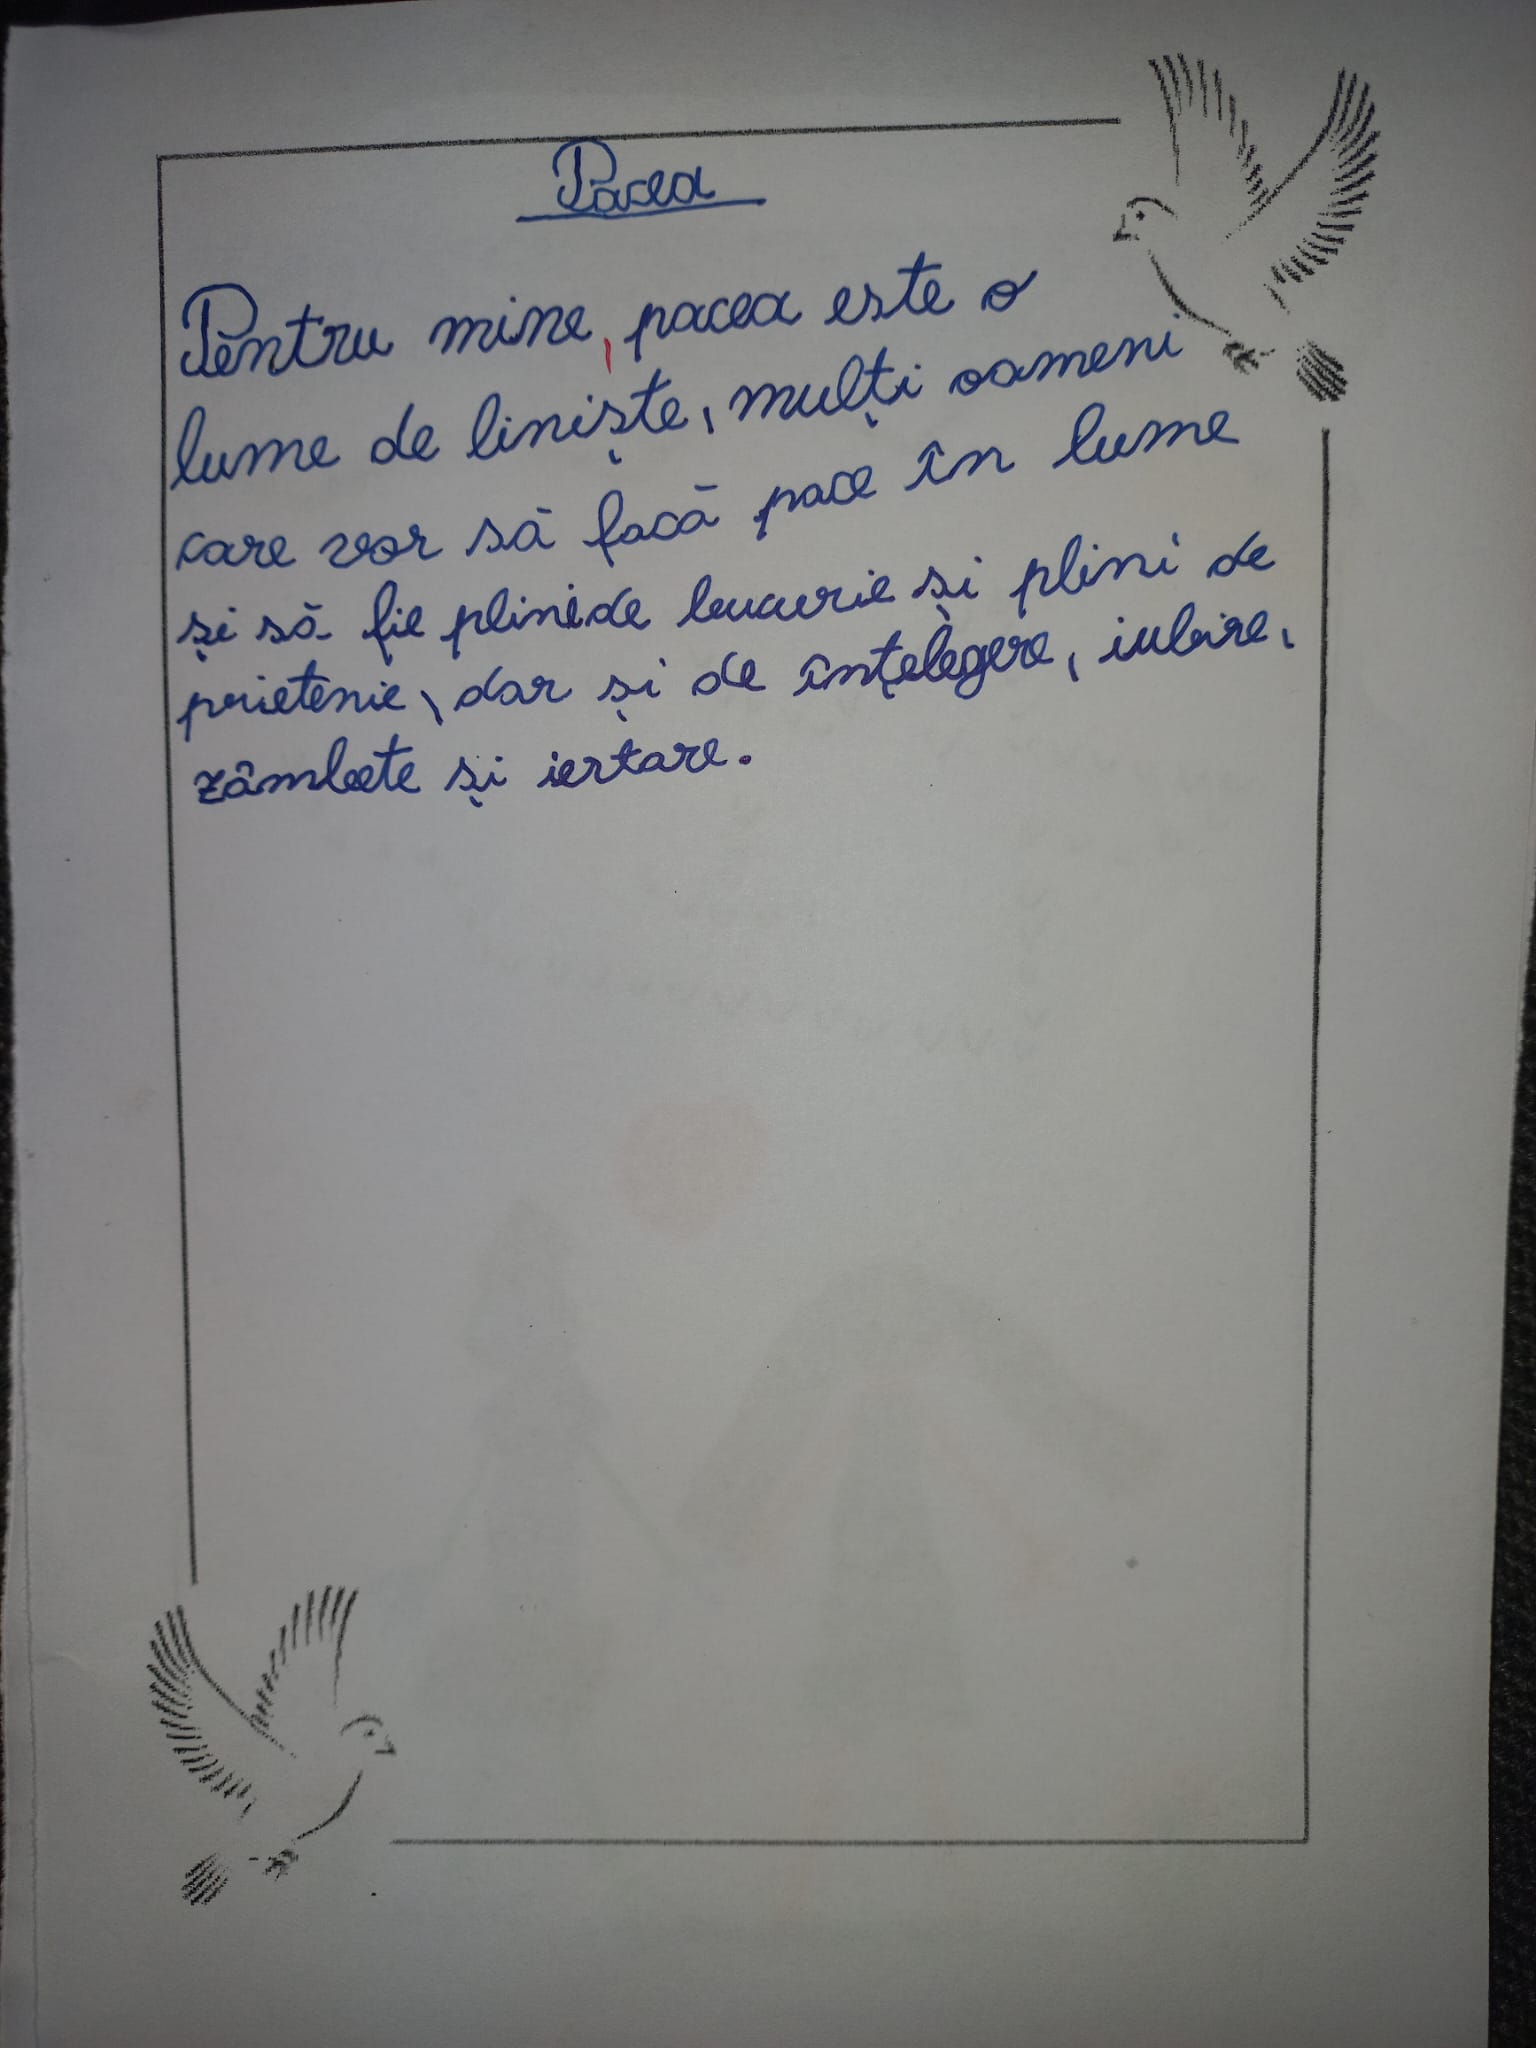 Pacea
Pentru mine, pacea este o
lume de liniște, mulți oameni
care vor să facă pace în lume
și să fie plini de bucurie și plini de
prietenie, dar și de înțelegere, iubire,
zâmbete și iertare.